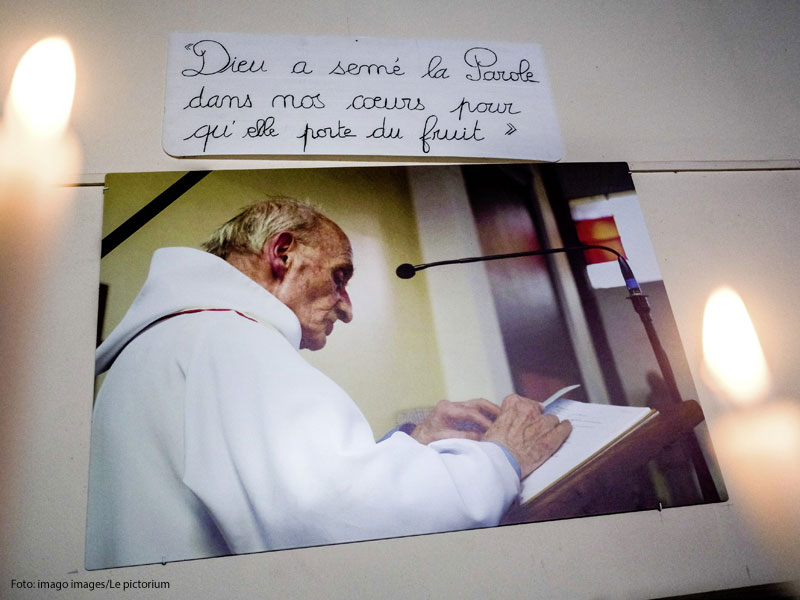 «Dieu a semé la Parole
dans nos cœurs pour
qu'elle porte du fruit »
Foto: imago images/Le pictorium